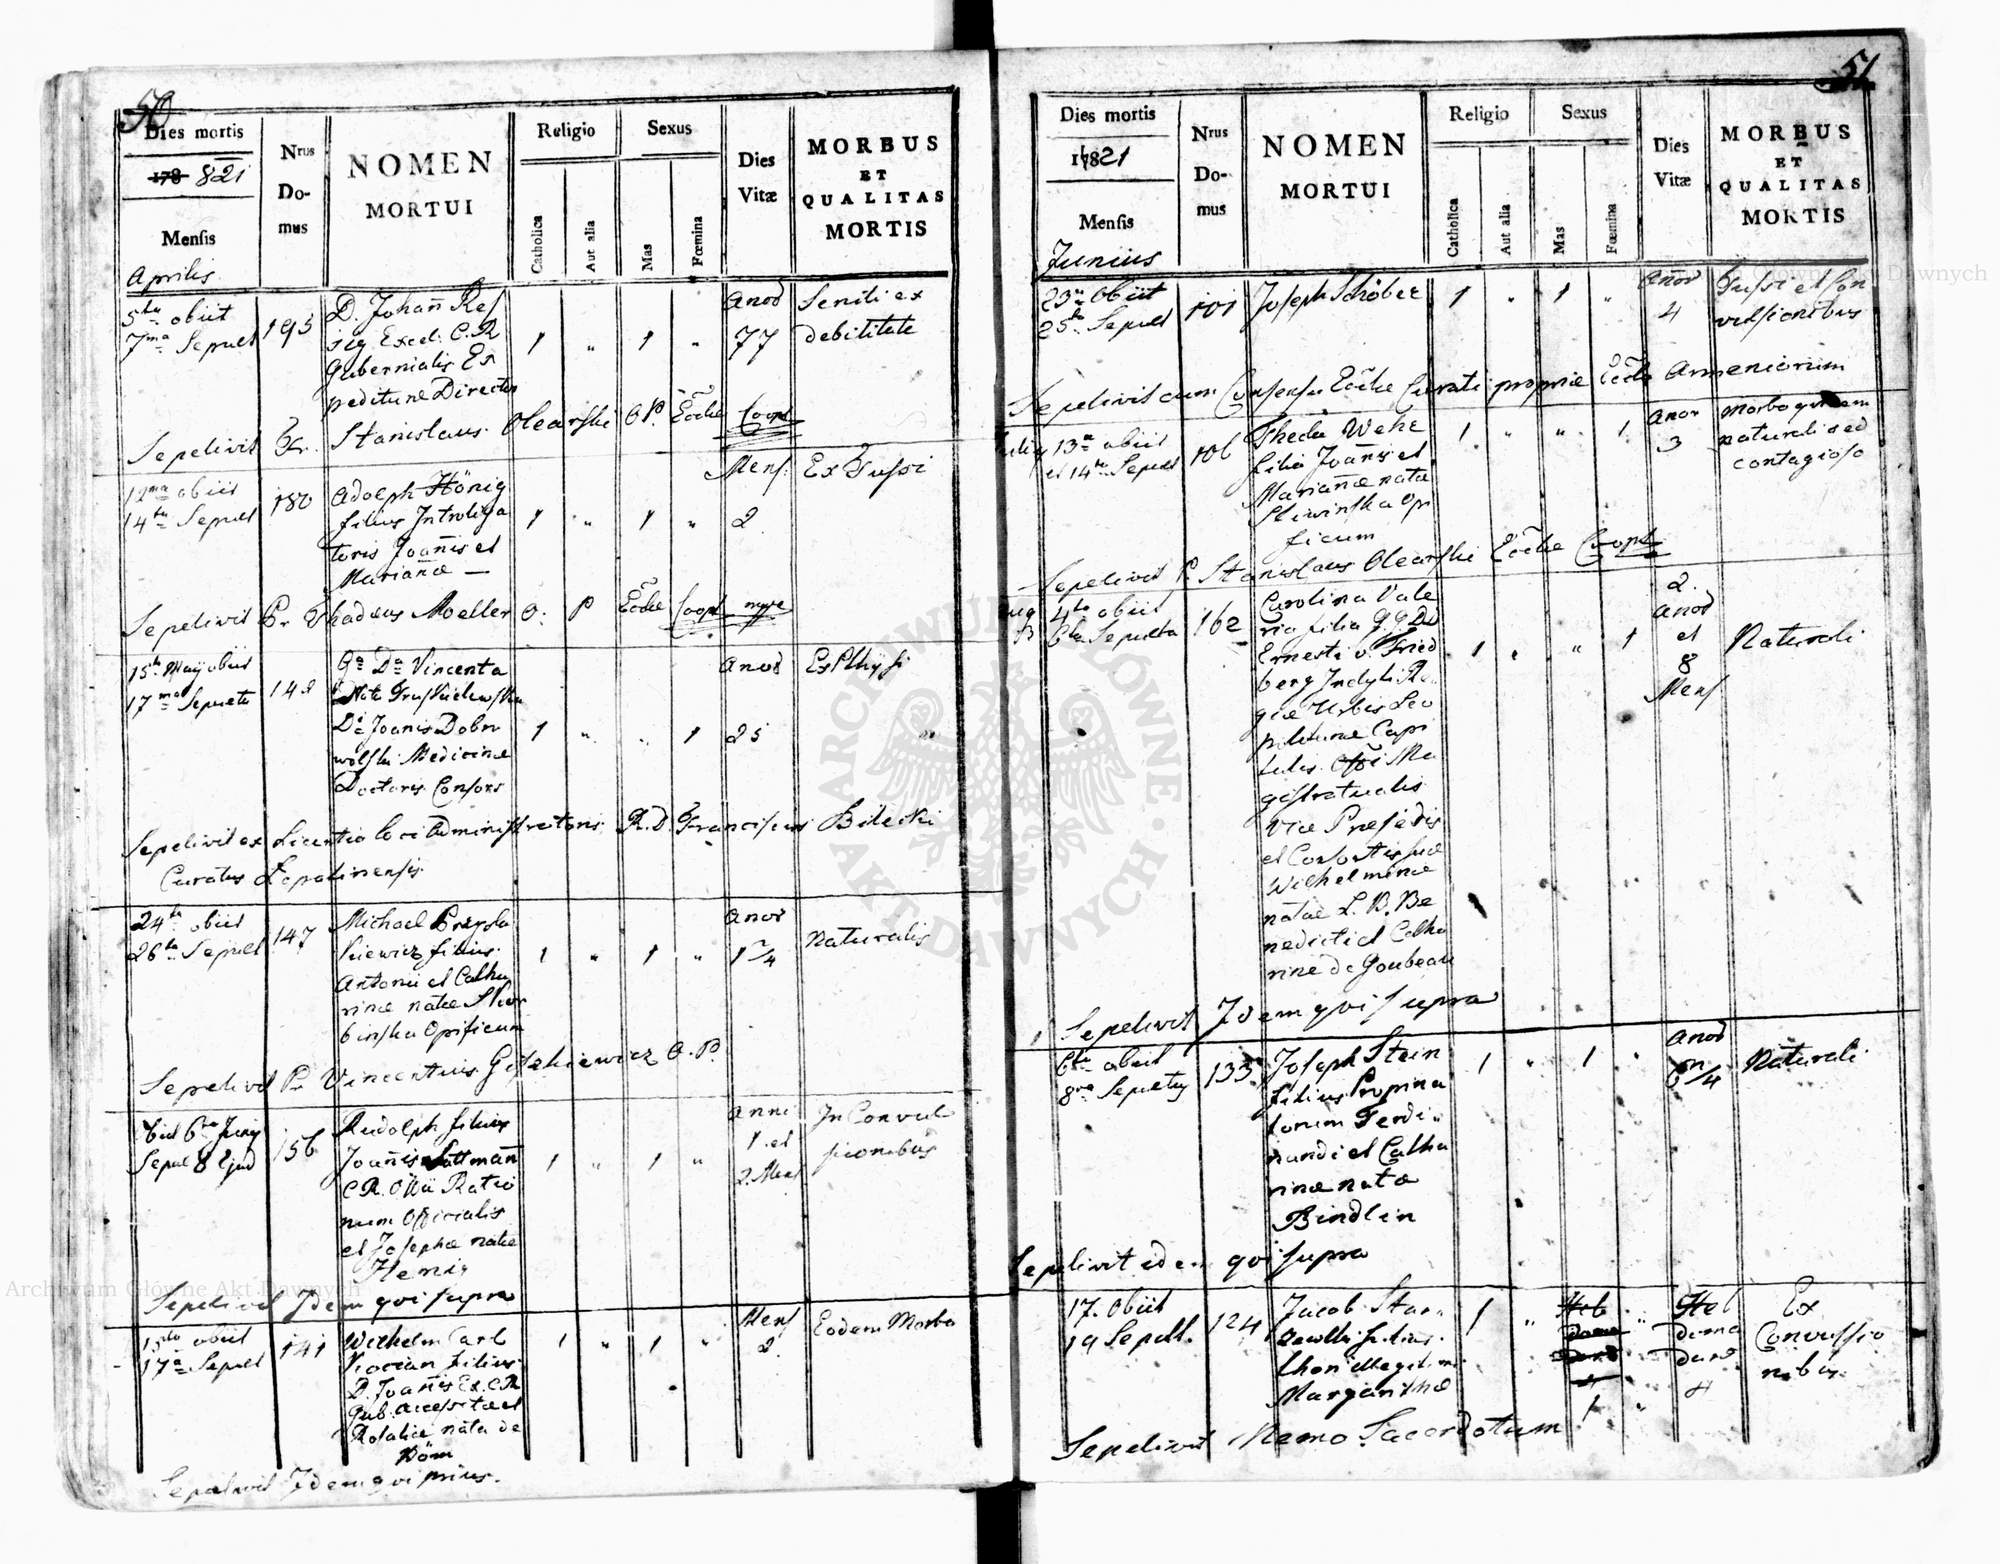 50
Dies mortis
178 821
Mensis
Aprilis
Nrus
Do-
mus
NOMEN
MORTUI
Religio
Catholica
Aut alia
Sexus
Mas
Fœmina
Dies
Vitæ
MORBUS
ET
QUALITAS
MORTIS
5ta obiit
7ma Sepult
195
D. Johañ Ref
sig Exced. C.R.
Gubernialis Ex
peditune Director
1 „ 1 „
Anod
77
Senili ex
debilitate
Sepelivit Fr. Stanislaus Olearski O.P. Eccłae Coopt
12ma obiit
14ta Sepult
180
Adolph Hönig
filius Introliga
toris Joañis et
Mariañæ
1 „ 1 „
Mens:
2
Ex Tussi
Sepelivit Pr. Thadæus Moeller O. P. Eccłae Coopt
15ta Maij obiit
17ma Sepulta
148
Ga Da Vincenta
Nata
Di Joanis Dobro
wolski Medicinæ
Doctoris Consors
1 „ „ 1
Anod
25
Ex Pthysi
Sepelivit ex Licentia loci Administratoris R.D. Franciscus Bilecki
Curatus Lopatinensis
24ta obiit
26ta Sepult
147
Michael Przysta
kiewicz filius
Antonii et Catha
rinæ natæ Skor
binska Opificum
1 „ 1 „
Anor
1 /4
Naturalis
Sepelivit Pr Vincentius O.P.
Obiit 6ta Junij
Sepul 8 Ejusd
156
Rudolph filius
Joañis Sottmañ
C.R. Offii Ratio
num Officialis
et Josephæ natæ
Henig
1 „ 1 „
Anni
1. et
2. Mens
In Convul
sionibus
Sepelivit Idem qvi supra
15ta obiit
17a Sepult
141
Wilhelm Carl
filius
D. Joañis Ex. C.R.
Gub. Accessistæ et
Rosaliæ nata de
Böm
1 „ 1 „
Mens
2
Eodem Morbo
Sepelivit Idem qvi prius.
51
Dies mortis
1821
Mensis
Junius
Nrus
Do-
mus
NOMEN
MORTUI
Religio
Catholica
Aut alia
Sexus
Mas
Fœmina
Dies
Vitæ
MORBUS
ET
QUALITAS
MORTIS
23a Obiit
25ta Sepult
101
Joseph Schöber
1 „ 1 „
Anor
4
Tussi et Con
vulsionibus
Sepelivit cum Consensu Eccłae Curati propriæ Eccłae Armeniorum
Julij 13a obiit
et 14ta Sepult
106
Thecla Wehe
filia Joañis et
Mariañæ natæ
Sliwinska Opi
ficum
1 „ „ 1
Anor
3
Morbo quidem
naturali sed
contagioso
Sepelivit P. Stanislaus Olearski Eccłae Coopt
Aug 4ta obiit
6ta Sepulta
162
Carolina Vale
ria filia G.G.D.D.
Ernesti v. Fried
berg Inclyti Re
giæ Urbis Leo
politanæ Capi
talis Offi Ma
gistratualis
Vice Præsidis
et Consortis suæ
Wilhelminæ
natæ L. B. Be
nedicti et Catha
rine de Goubeau
1 „ „ 1
2.
Anod
et
8
Mens
Naturali
Sepelivit Idem qvi supra
6ta obiit
8va Sepultus
133
Joseph Stein
filius Propina
torum Ferdi„
nandi et Catha
rinæ nata
Bindlin
1 „ 1 „
Anod
/4
Naturali
Sepelivit idem qvi supra
17. Obiit
19 Sepult.
124
Jacob Star„
filius
Margarithæ
1 „ 1 „
Heb
doma
dard
4
Ex
Convulsio
nibus.
Sepelivit Nemo Sacerdotum
Archiwum Główne Akt Dawnych
Archiwum Główne Akt Dawnych
ARCHIWUM GŁÓWNE AKT DAWNYCH